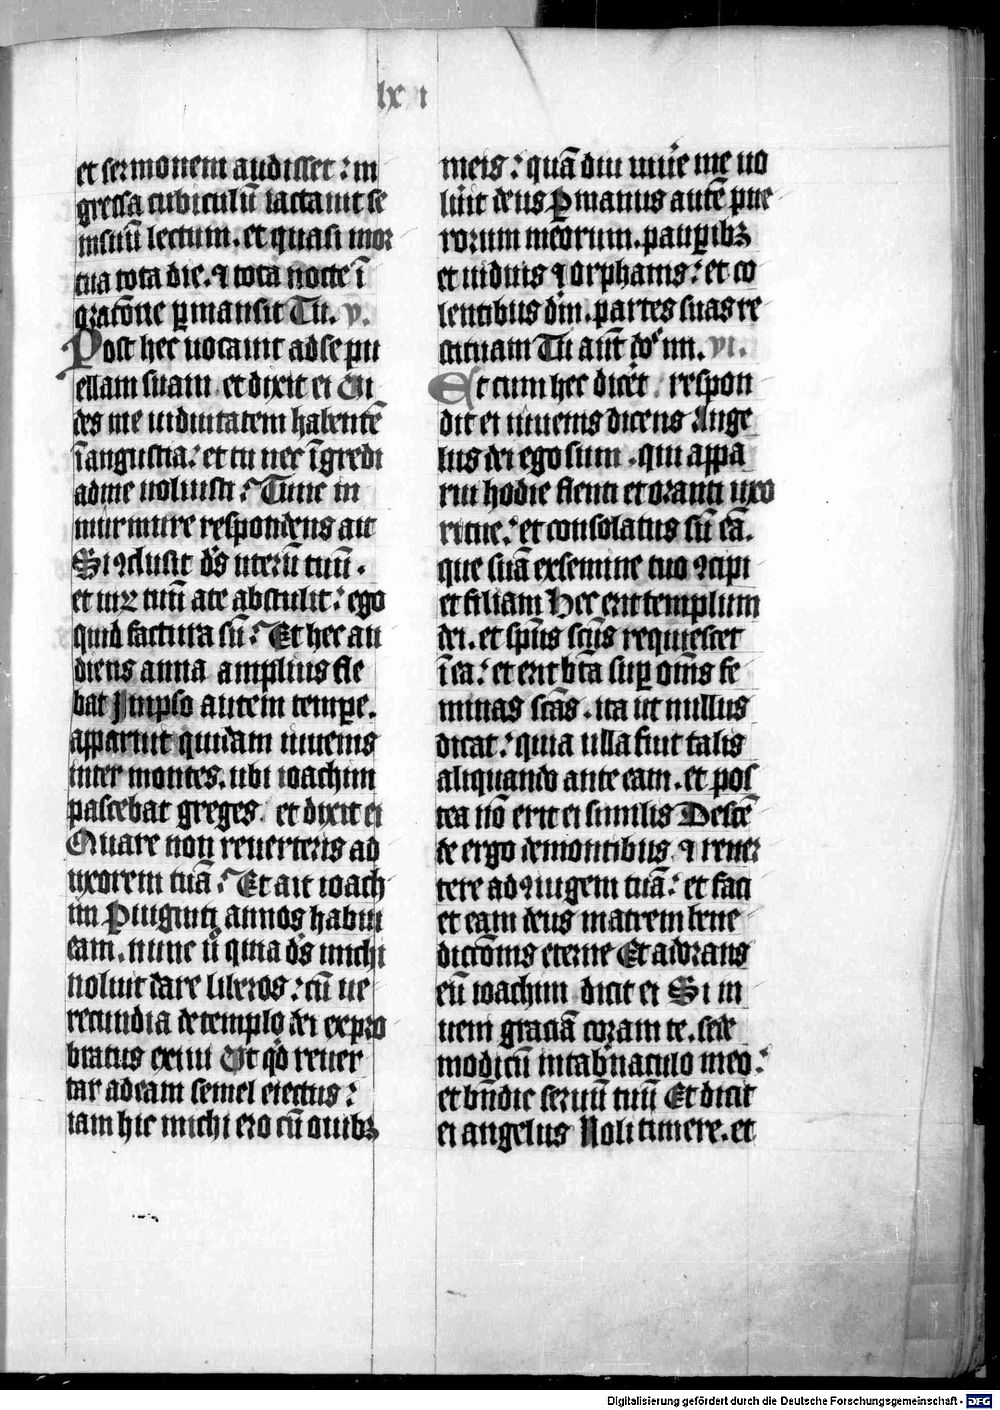 lxi
et sermonem audisset: in
gressa cubiculū iactauit se
in suū lectum. et quasi mor
tua tota die. ⁊ tota nocte ī
oratōne ꝑmansit Tu. v.
Post hec uocauit ad se pu
ellam suam. et dixit ei Ui
des me uiduitatem habentē
ī angustia: et tu nec īgredi
ad me uoluisti: Tunc in
murmure respondens ait
Si ꝯclusit dˢs uterū tuū.
et uirū tuū a te abstulit: ego
quid factura sū: Et hec au
diens anna amplius fle
bat In ipso autem tempꝛe.
apparuit quidam iuuenis
inter montes. ubi ioachim
pascebat greges. et dixit ei
Quare non reuerteris ad
uxorem tuā: Et ait ioach
im Ꝑ uiginti annos habui
eam. nunc ū quia dˢs michi
noluit dare liberos: cū ue
recundia de templo dei expro
bratus exiui Ut qd reuer
tar ad eam semel eiectus:
iam hic michi ero cū ouibꝫ
meis: quā diu uiuˢe me uo
lūit deus Ꝑ manus autē pue
rorum meorum. pauꝑibꝫ
et uiduis ⁊ orphanis: et co
lentibus dm̄. partes suas re
stituam Tu aūt do nr̄i. vi.
Et cum hec dicˢet. respon
dit ei iuuenis dicens Ange
lus dei ego sum. qui appa
rui hodie flenti et oranti uxo
ri tue: et consolatus sū eā.
que suā ex semine tuo ꝯcipi
et filiam Hec erit templum
dei. et spūs scūs requiescet
ī ea: et erit bt̄a suꝑ om̄s fe
minas scās. ita ut nullus
dicat: quia ulla fuit talis
aliquando ante eam. et pos
tea nō erit ei similis Descē
de ergo de montibus. ⁊ reuer
tere ad ꝯiugem tuā: et faci
et eam deus matrem bene
dictōnis eterne Et adorans
eū ioachim dicit ei Si in
ueni gratiā coram te. sede
modicū in tab̄naculo meo:
et bn̄dic seruū tuū Et dicit
ei angelus Noli timere. et
Digitalisierung gefördert durch die Deutsche Forschungsgemeinschaft - DFG